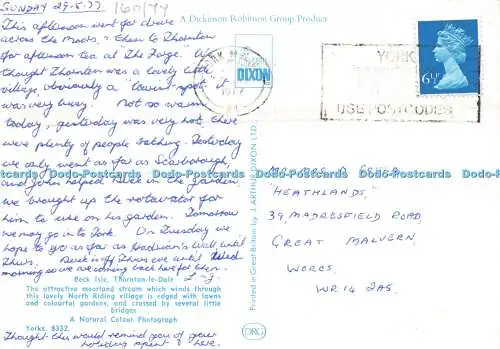 SUNDAY 29.5.77
160/74
A Dickinson Robinson Group Product
This afternoon went for drive
across the Moors, then to Thornton
for afternoon tea at "The Forge". We
thought Thornton was a lovely little
village, obviously a "tourist spot" it
was very busy. Not so warm
today, yesterday was very hot, there
were plenty of people bathing. Yesterday
we only went as far as Scarborough,
and John helped in the garden
we brought up the rotavator for
him to use on his garden. Tomorrow
we may go in to York. On Tuesday we
hope to go as far as Hadrian's Wall until
Thurs. until Wed
morning so we are coming back here for then.
DIXON
1977
YORK
USE POSTCODES
6½P
"HEATHLANDS,"
39, MADRESFIELD ROAD,
GREAT MALVERN,
WORCS.
WR14 2AS.
Printed in Great Britain by J. ARTHUR DIXON LTD
Dodo-Postcards Dodo-Postcards Dodo-Postcards Dodo-Postcards
Beck Isle, Thornton-le-Dale
The attractive moorland stream which winds through
this lovely North Riding village is edged with lawns
and colourful gardens, and crossed by several little
bridges
A Natural Colour Photograph
Yorks. 8332.
DRG
Thought this would remind you of your
holiday spent here.